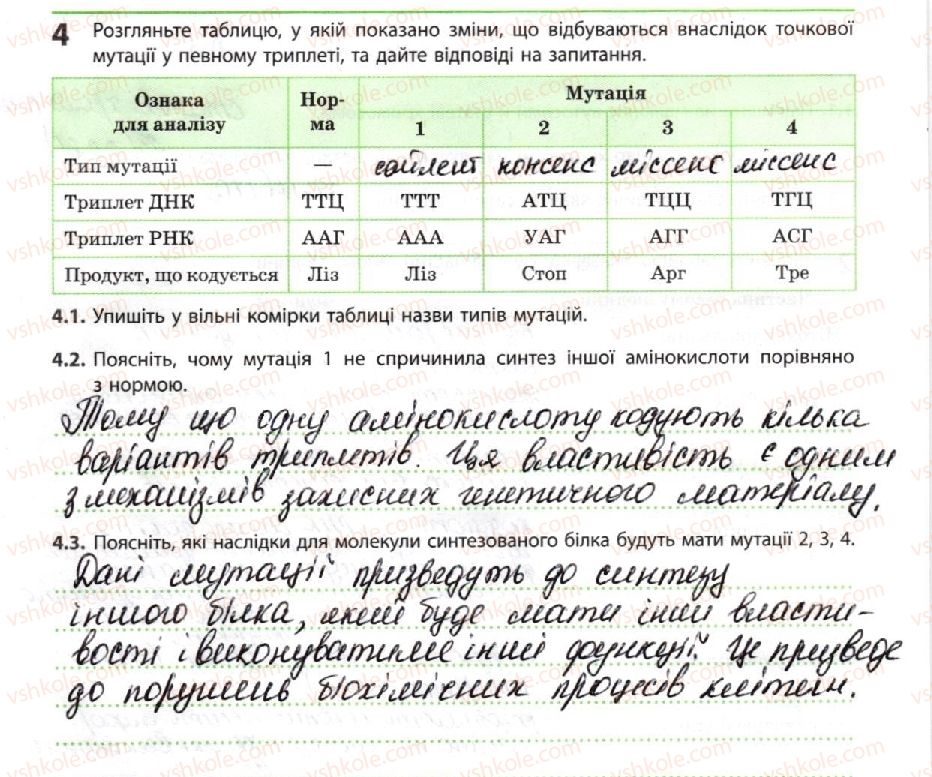 4 Розгляньте таблицю, у якій показано зміни, що відбуваються внаслідок точкової
мутації у певному триплеті, та дайте відповіді на запитання.
Ознака для аналізу Нор-ма Мутація
1 2 3 4
Тип мутації — сайлент нонсенс міссенс міссенс
Триплет ДНК ТТЦ ТТТ АТЦ ТЦЦ ТГЦ
Триплет РНК ААГ ААА УАГ АГГ АСГ
Продукт, що кодується Ліз Ліз Стоп Арг Тре
4.1. Упишіть у вільні комірки таблиці назви типів мутацій.
4.2. Поясніть, чому мутація 1 не спричинила синтез іншої амінокислоти порівняно
з нормою.
Тому що одну амінокислоту кодують кілька
варіантів триплетів. Ця властивість є одним
з механізмів захисних генетичного матеріалу.
4.3. Поясніть, які наслідки для молекули синтезованого білка будуть мати мутації 2, 3, 4.
Дані мутації призведуть до синтезу
іншого білка, який буде мати інші власти-
вості і виконуватиме інші функції. Це призведе
до порушень біохімічних процесів клітини.
vshkole.com